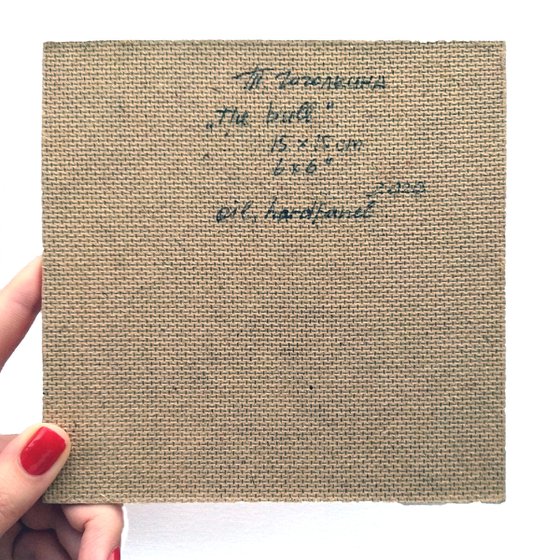 Т. Гоголькина
„The bull"
15 x 15 cm
6 x 6"
2020
oil, hardpanel